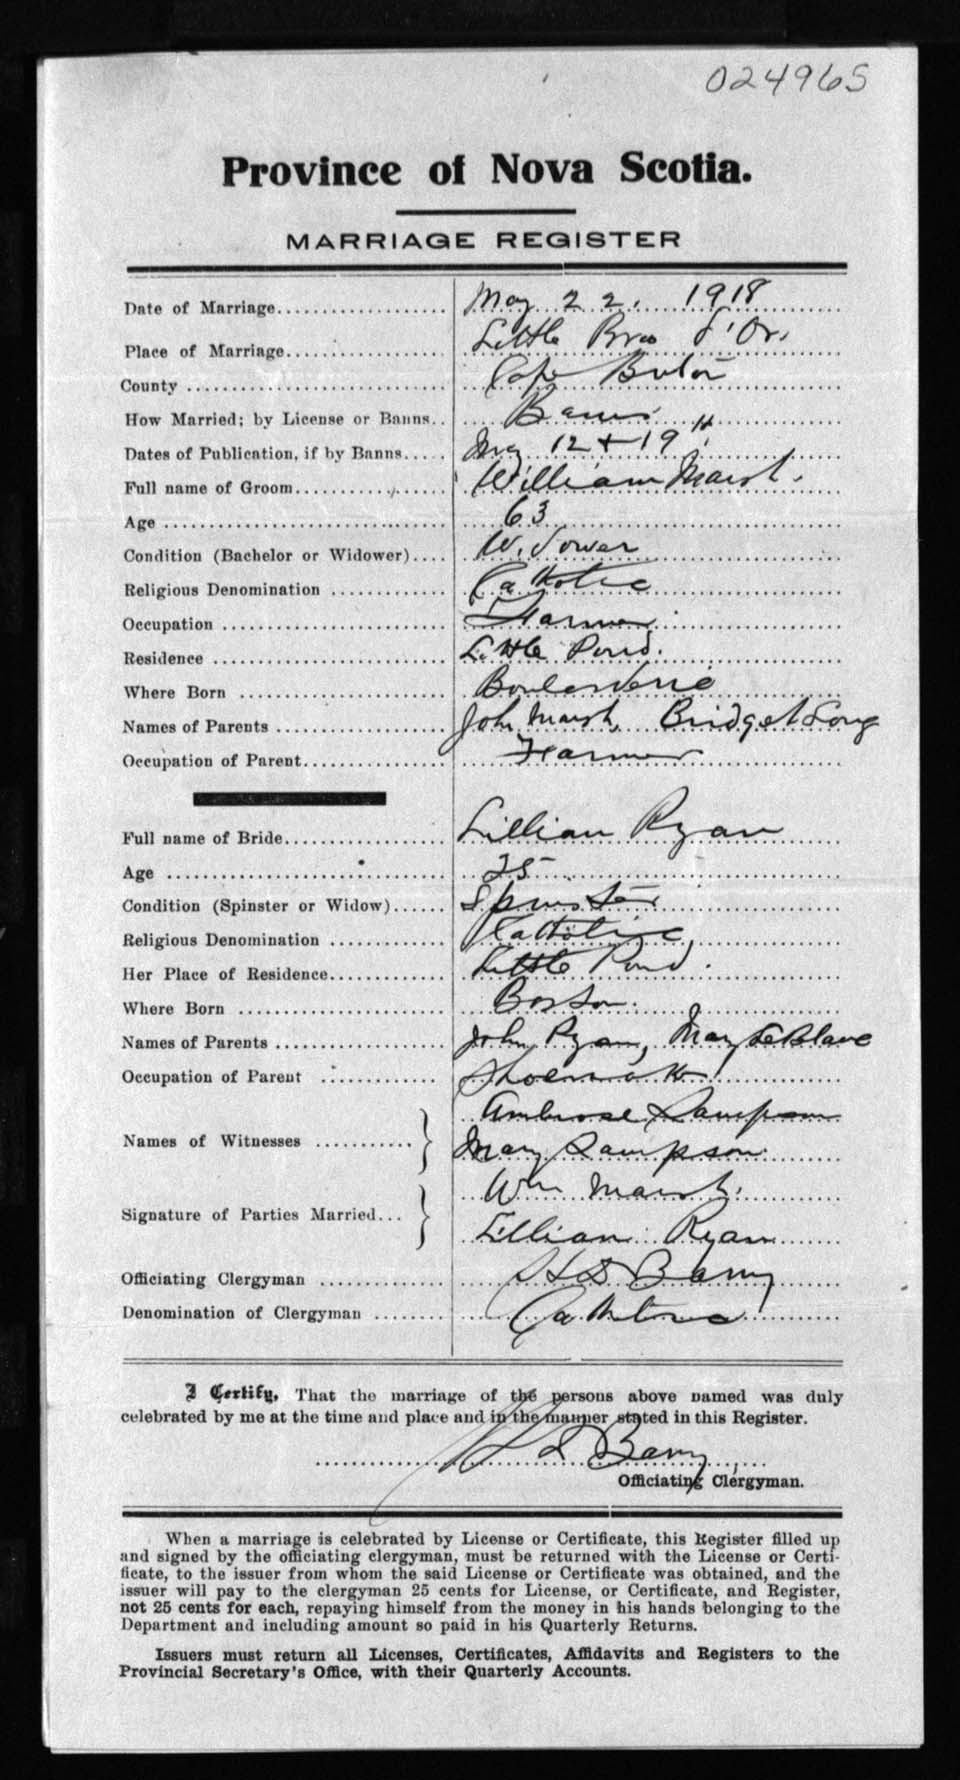 024965
Province of Nova Scotia.
MARRIAGE REGISTER
Date of Marriage May 22, 1918
Place of Marriage Little Bras d'Or.
County Cape Breton
How Married; by License or Banns Banns
Dates of Publication, if by Banns May 12 + 19th
Full name of Groom William Marsh.
Age 63
Condition (Bachelor or Widower) Widower
Religious Denomination Catholic
Occupation Farmer
Residence Little Pond.
Where Born Boularderie
Names of Parents John Marsh, Bridget Long
Occupation of Parent Farmer
Full name of Bride Lillian Ryan
Age 25
Condition (Spinster or Widow) Spinster
Religious Denomination Catholic
Her Place of Residence Little Pond.
Where Born Boston.
Names of Parents John Ryan, Mary LeBlanc
Occupation of Parent Shoemaker
Names of Witnesses Ambrose Sampson
Mary Sampson
Signature of Parties Married Wm Marsh.
Lillian Ryan
Officiating Clergyman Barry
Denomination of Clergyman Catholic
I Certify, That the marriage of the persons above named was duly
celebrated by me at the time and place and in the manner stated in this Register.
Barry
Officiating Clergyman.
When a marriage is celebrated by License or Certificate, this Register filled up
and signed by the officiating clergyman, must be returned with the License or Certi-
ficate, to the issuer from whom the said License or Certificate was obtained, and the
issuer will pay to the clergyman 25 cents for License, or Certificate, and Register,
not 25 cents for each, repaying himself from the money in his hands belonging to the
Department and including amount so paid in his Quarterly Returns.
Issuers must return all Licenses, Certificates, Affidavits and Registers to the
Provincial Secretary's Office, with their Quarterly Accounts.